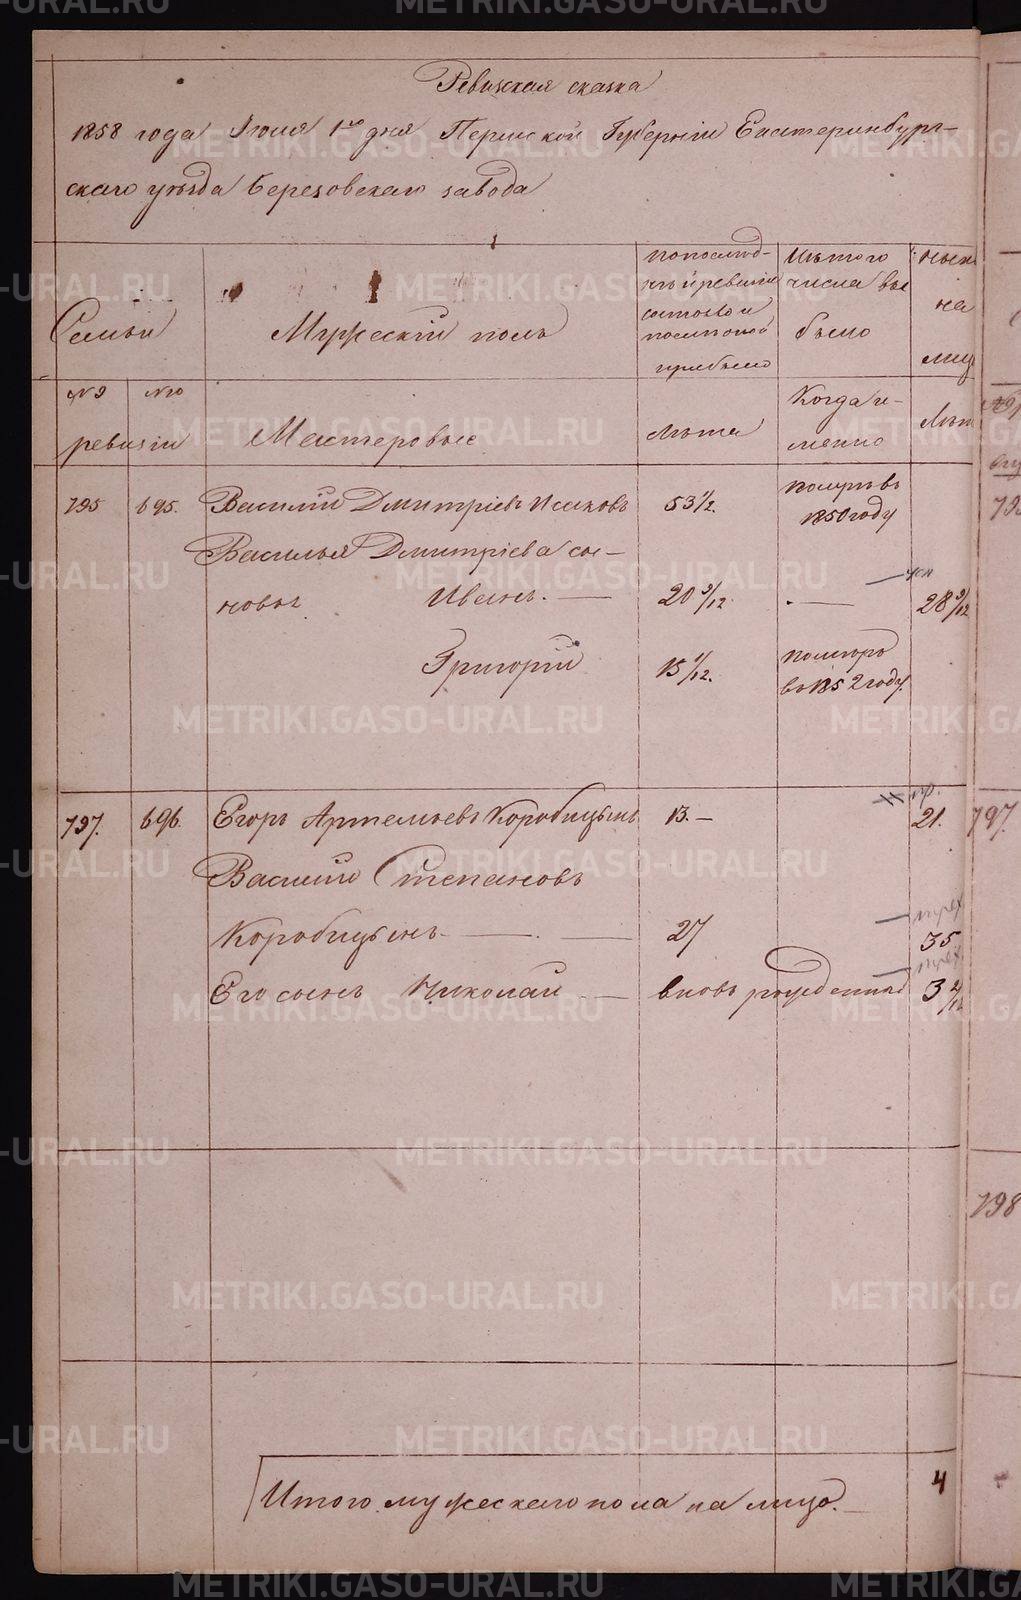 METRIKI.GASO-URAL.RU
Ревизская сказка
1858 года Июня 1го дня Пермской Губерніи Екатеринбург-
скаго уѣзда Березовскаго завода
Семьи
Мужескій полъ
по послѣд-
ней ревизіи
состояло и
после того
прибыло
Изъ того
числа вы
было
Ныне
на
лиц
№ 9
№ 10
ревизіи
Мастеровые
Лѣта
Когда и-
менно
Лѣт
795
695.
Василій Дмитріевъ Исаковъ
53 1/2.
померъ въ
1850 году
Василья Дмитріева сы-
новья Иванъ. —
20 9/12.
. —
28 9/12
Григорій
15 1/12.
померъ
въ 1852 году.
797.
696.
Егоръ Артемьевъ Коробицынъ
13. —
21.
797.
Василій Степановъ
Коробицынъ — . —
27
35
Его сынъ Николай —
вновь рожденный
3 4/12
798
Итого мужескаго пола на лицо. —
4